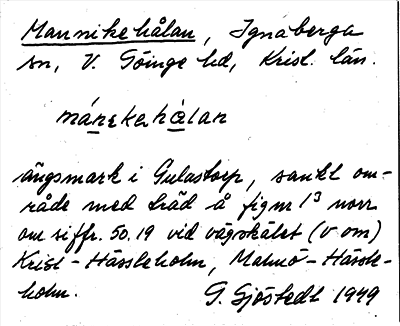 Mannikehålan, Ignaberga
sn, V. Göinge hd, Krist. län.
mánekehå̀lan
ängsmark i Gulastorp, sankt om-
råde med träd å figur 1³ norr
om siffr. 50.19 vid vägskälet (v om)
Krist-Hässleholm, Malmö-Hässle-
holm.
G. Sjöstedt 1949